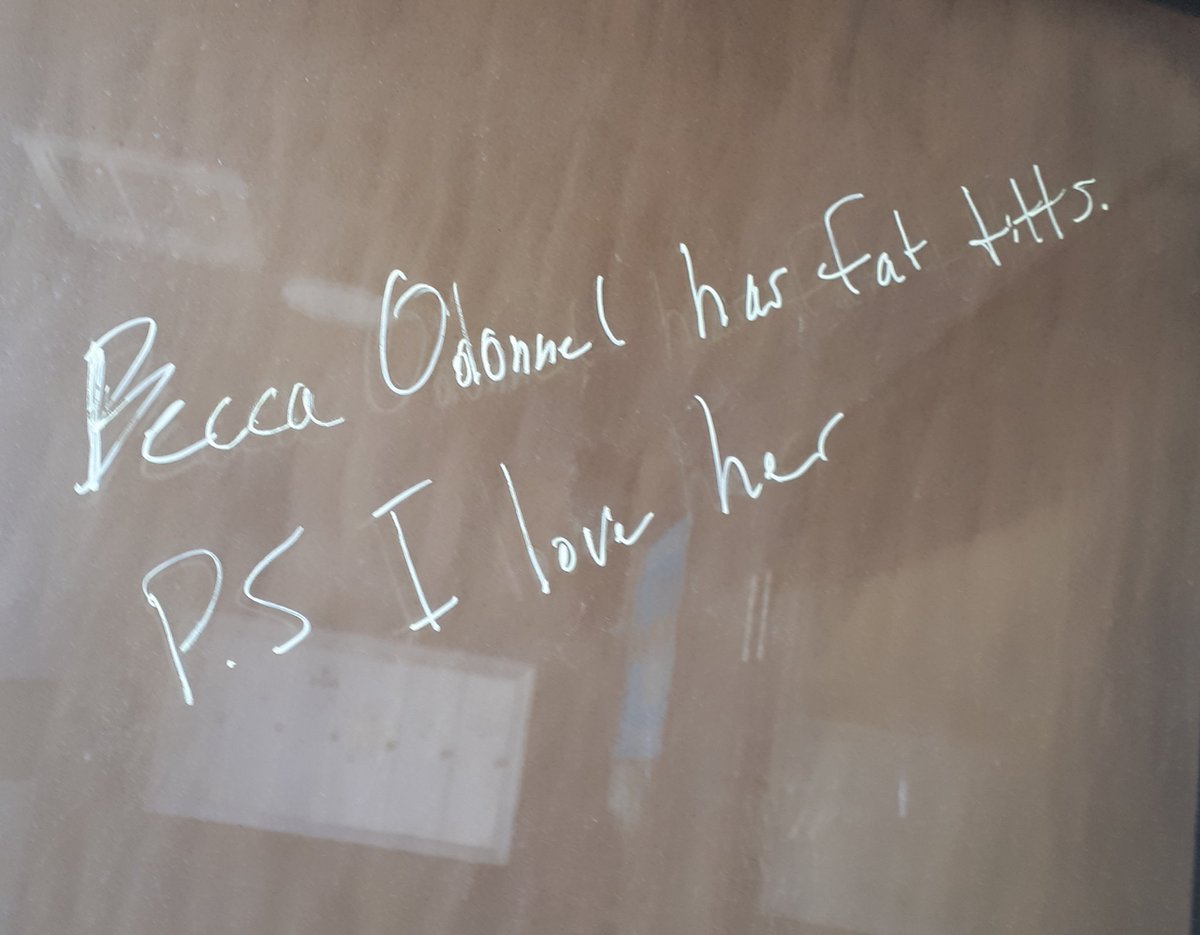 Becca Odonnel has fat titts.
P.S I love her